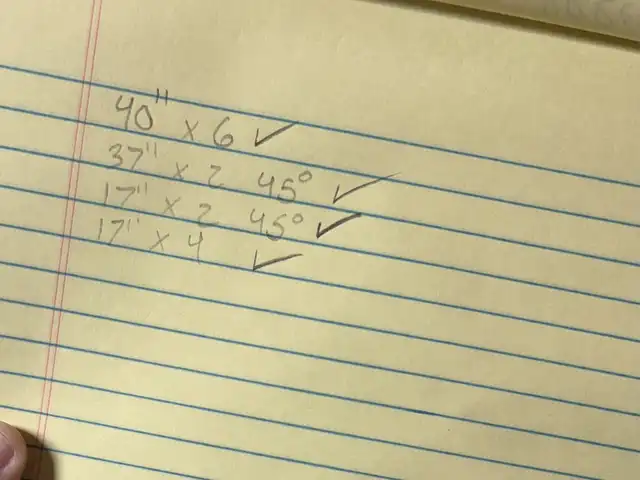 40" x 6 ✓
37" x 2 45° ✓
17" x 2 45° ✓
17" x 4 ✓